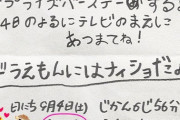 プライズバースデー🎂する
4日のよるにテレビのまえに
あつまてね!
ドラえもんにはナイショだよ
日にち9月4日(土) じかん6じ56分